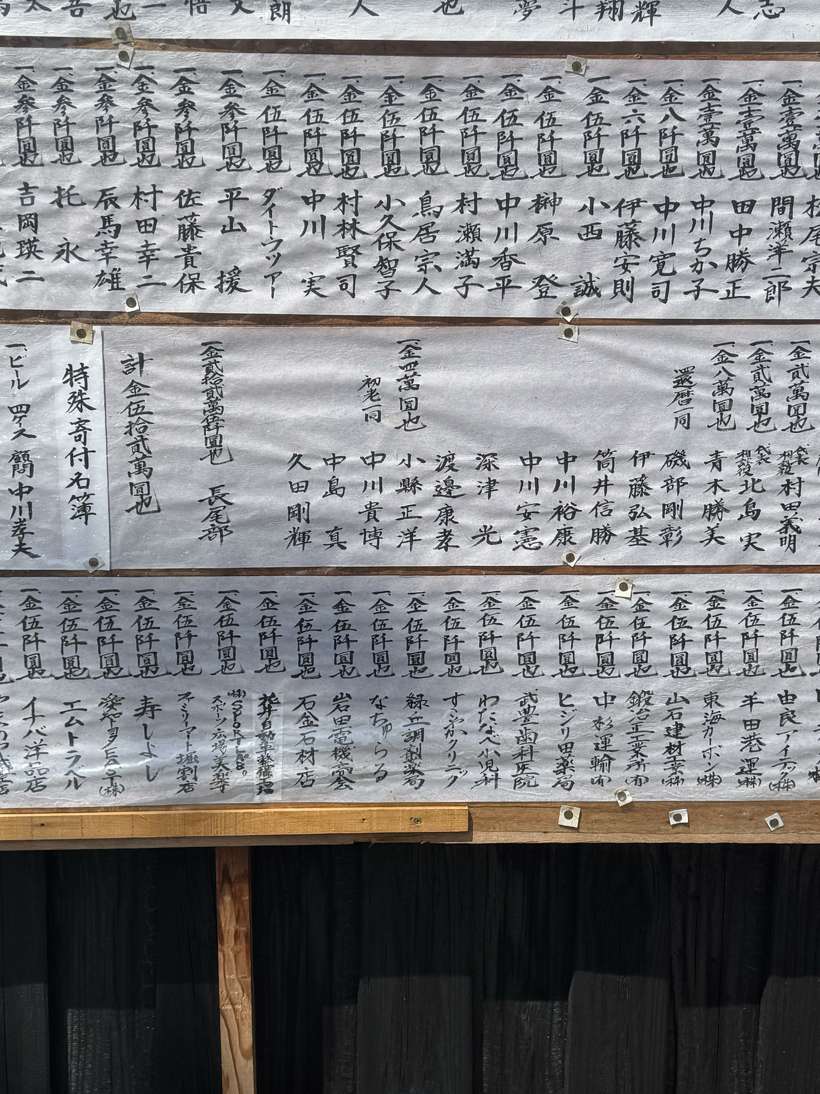 志
人
輝
翔
斗
夢
也
人
朗
一金壹萬圓也 間瀬洋二郎
一金壹萬圓也 田中勝正
一金壹萬圓也 中川ちか子
一金八阡圓也 中川寛司
一金六阡圓也 伊藤安則
一金伍阡圓也 小西 誠
一金伍阡圓也 榊原 登
一金伍阡圓也 中川香平
一金伍阡圓也 村瀬満子
一金伍阡圓也 鳥居宗人
一金伍阡圓也 小久保智子
一金伍阡圓也 村林賢司
一金伍阡圓也 中川 実
一金伍阡圓也 ダイトウツアー
一金参阡圓也 平山 援
一金参阡圓也 佐藤貴保
一金参阡圓也 村田幸二
一金参阡圓也 辰馬幸雄
一金参阡圓也 托 永
一金参阡圓也 吉岡瑛二
一金貳萬圓也 村田義明
一金貳萬圓也 北島 実
一金八萬圓也 青木勝美
還暦一同
磯部剛彰
伊藤弘基
筒井信勝
中川裕康
中川安憲
深津 光
渡邉康孝
一金四萬圓也 小縣正洋
初老一同 中川貴博
中島 真
久田剛輝
一金貳拾貳萬伍阡圓也 長尾部
計金伍拾貳萬圓也
特殊寄付名簿
一ビル 四ケース 髙中川孝夫
一金伍阡圓也 由良アイテック(株)
一金伍阡圓也 半田港運(株)
一金伍阡圓也 東海カーボン(株)
一金伍阡圓也 山石建材工業(株)
一金伍阡圓也 鍛冶正工業所(有)
一金伍阡圓也 中杉運輸(有)
一金伍阡圓也 ヒジリ田薬局
一金伍阡圓也 武豊歯科医院
一金伍阡圓也 わたなべ小児科
一金伍阡圓也 すずかクリニック
一金伍阡圓也 緑ヶ丘調剤薬局
一金伍阡圓也 なちゅらる
一金伍阡圓也 岩田電機商会
一金伍阡圓也 石金石材店
一金伍阡圓也
一金伍阡圓也 スポーツ広場美楽館
一金伍阡圓也
一金伍阡圓也 寿しよし
一金伍阡圓也
一金伍阡圓也 エムトラベル
一金伍阡圓也 イナバ洋品店